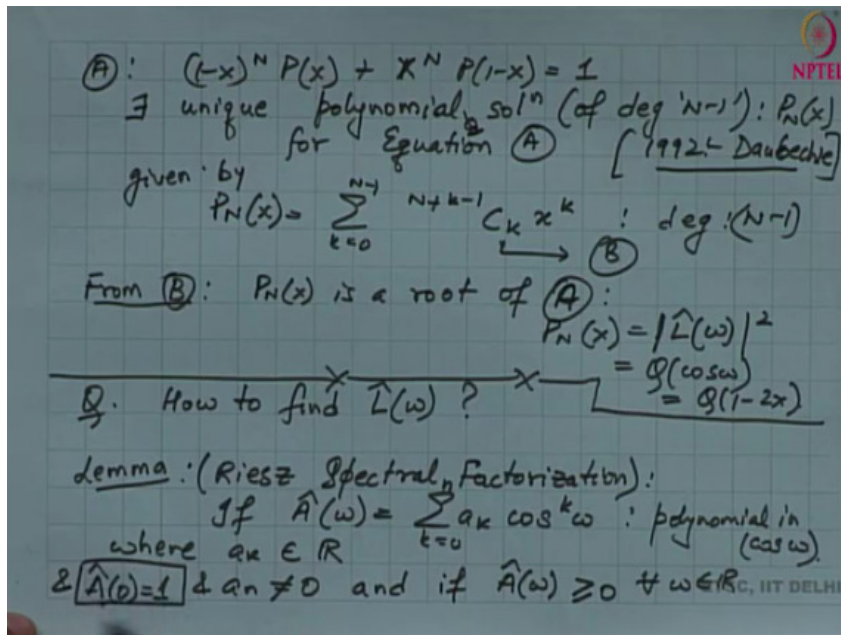 Ⓐ: (1-x)^N P(x) + x^N P(1-x) = 1
NPTEL
∃ unique polynomial solⁿ (of deg 'N-1'): P_N(x)
for Equation Ⓐ [1992:- Daubechie]
given by
P_N(x) = ∑_{k=0}^{N-1} ^{N+k-1}C_k x^k : deg:(N-1)
→ Ⓑ
From Ⓑ: P_N(x) is a root of Ⓐ:
P_N(x) = |L̂(ω)|²
= Q(cosω)
= Q(1-2x)
Q. How to find L̂(ω) ?
Lemma: (Riesz Spectral Factorization):
If Â(ω) = ∑_{k=0}^{n} a_k cos^k ω : polynomial in
where a_k ∈ ℝ (cos ω).
& Â(0)=1 & a_n ≠ 0 and if Â(ω) ≥ 0 ∀ ω∈ℝ
C, IIT DELHI